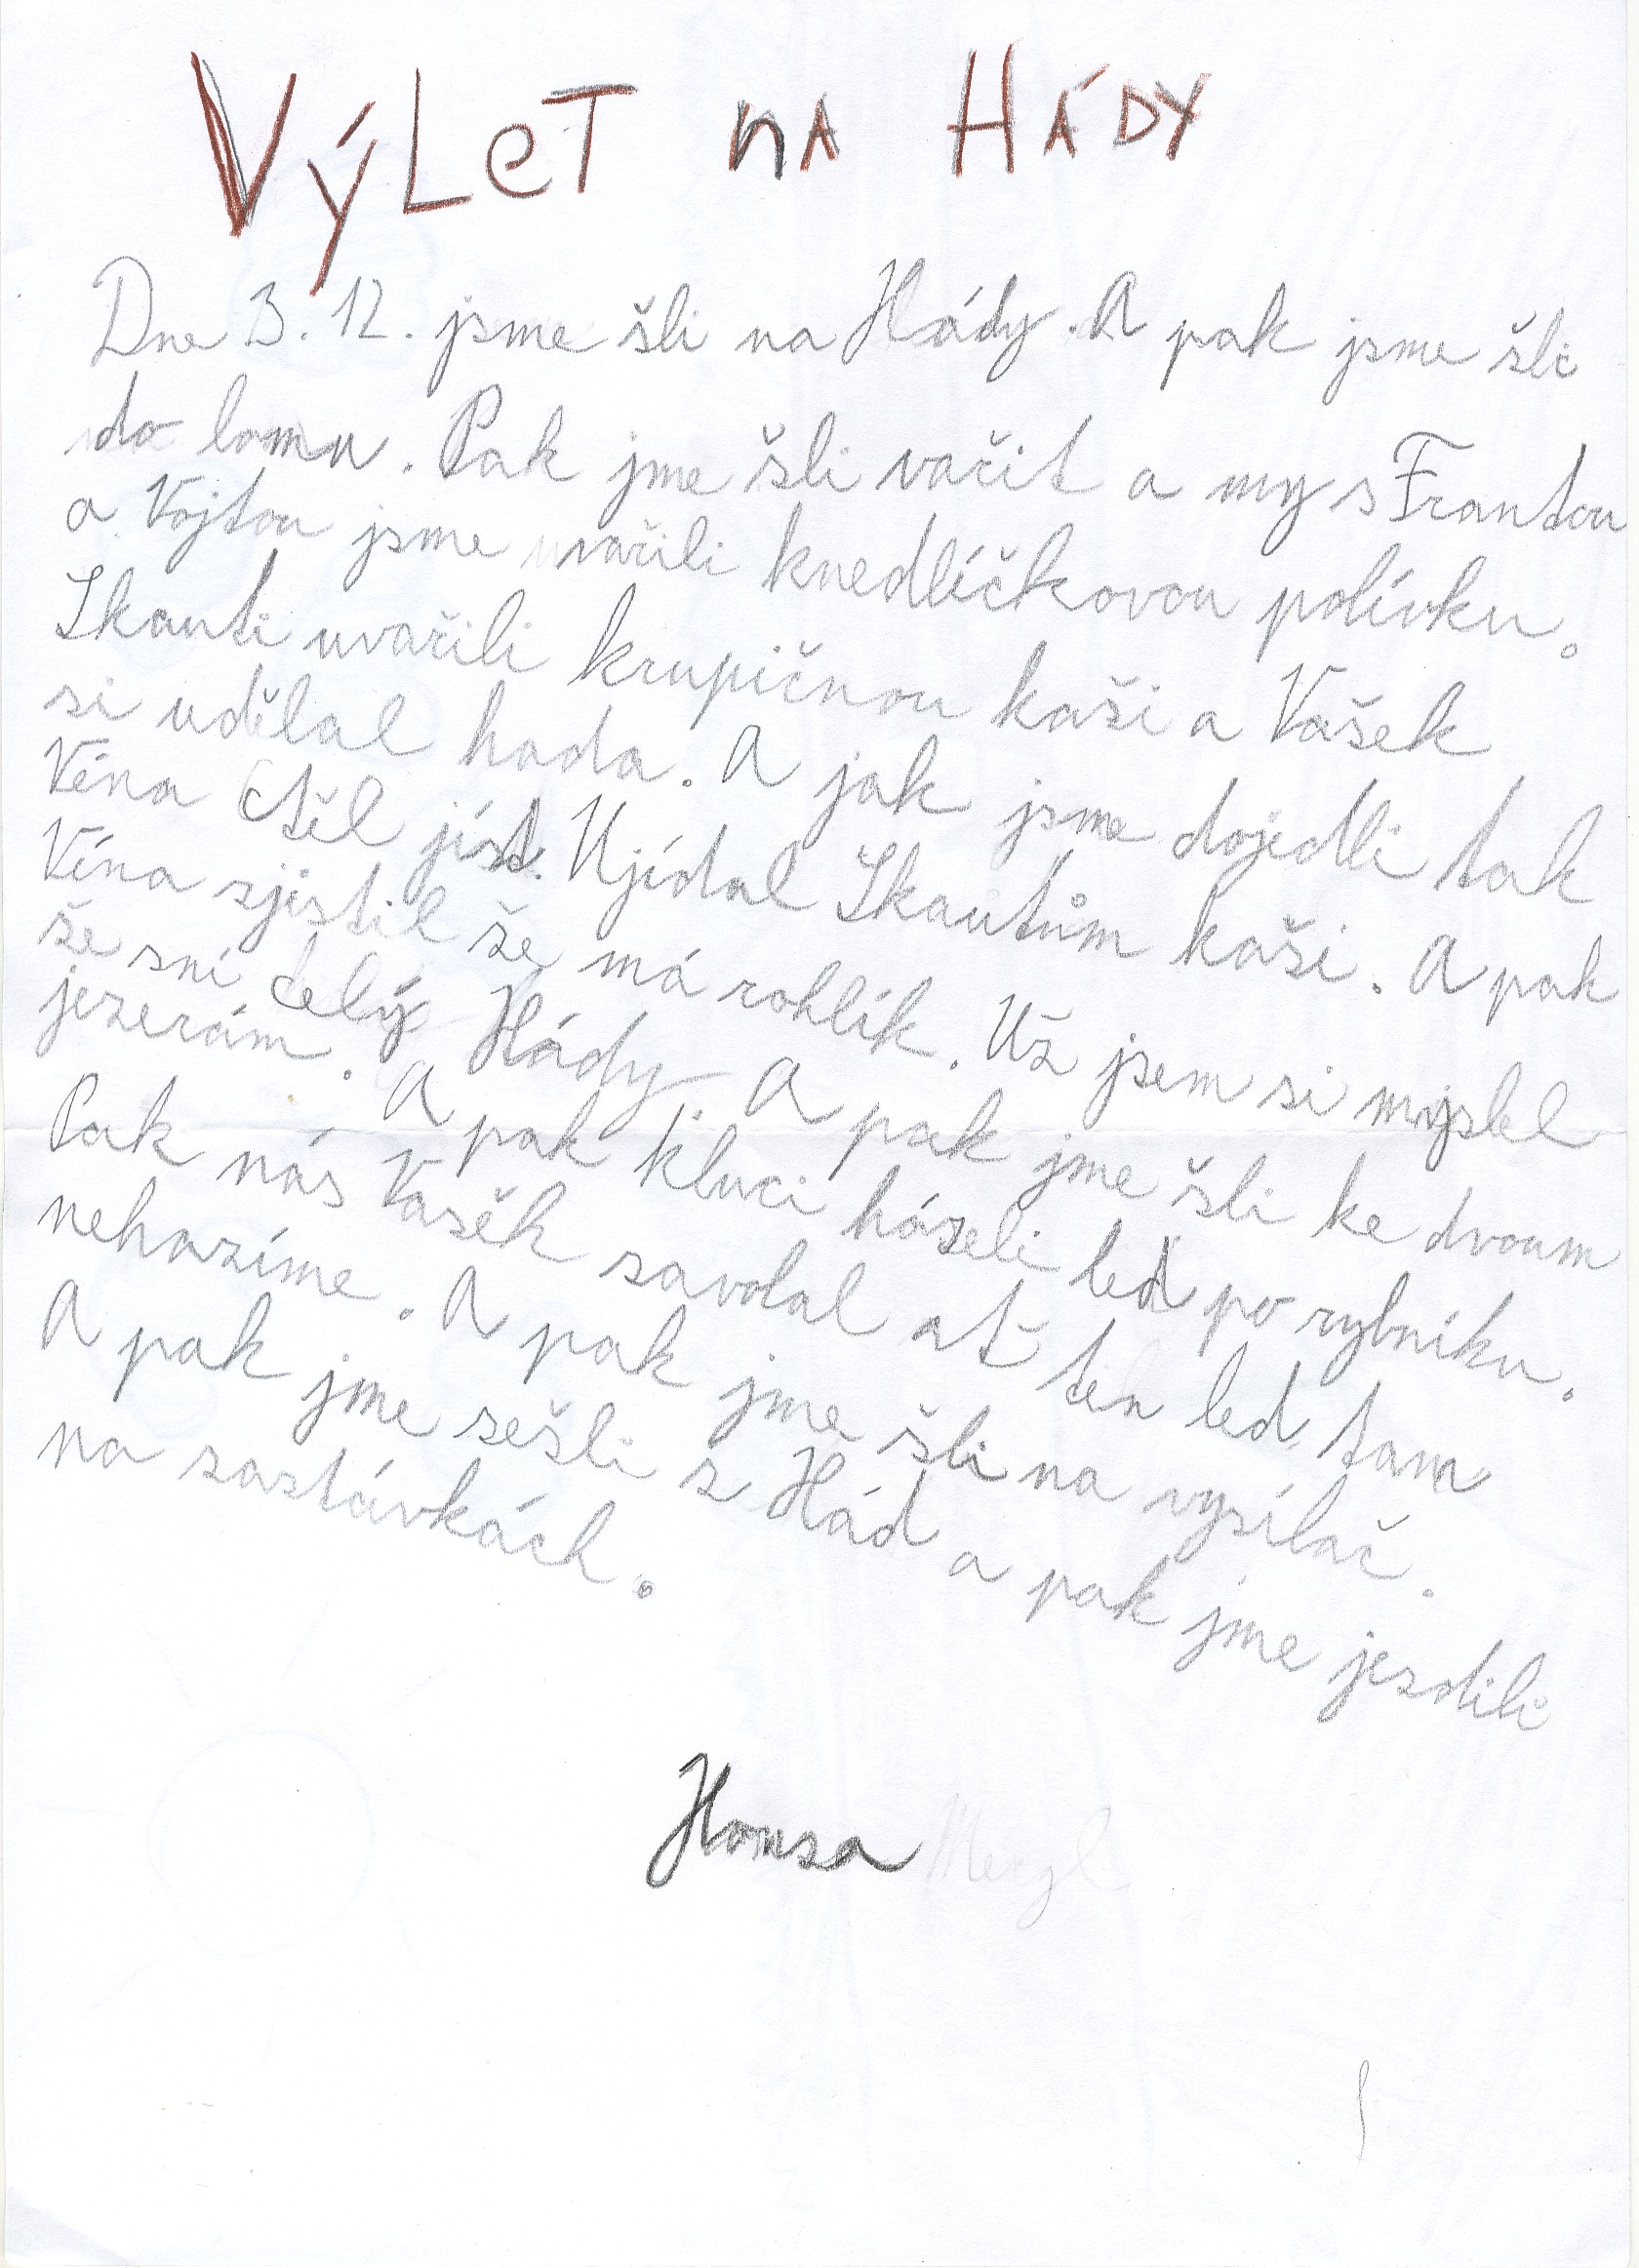 VýLeT nA HÁDY
Dne 3. 12. jsme šli na Hády. A pak jsme šli
do lomu. Pak jme šli vařit a my s Frantou
a Vojtou jsme uvařili knedlíčkovou polívku.
Skauti uvařili krupičnou kaši a Vašek
si udělal hada. A jak jsme dojedli tak
Véna Ctěl jíst. Ujídal Skautům kaši. A pak
Véna zjistil že má rohlík. Už jsem si myslel
že sní celý Hády. A pak jme šli ke dvoum
jezerám. A pak kluci házeli led po rybníku.
Pak nás Vašek zavolal ať ten led tam
nehazíme. A pak jme šli na vysílač.
A pak jme sešli z Hád a pak jme jezdili
na zastávkách.
Honza